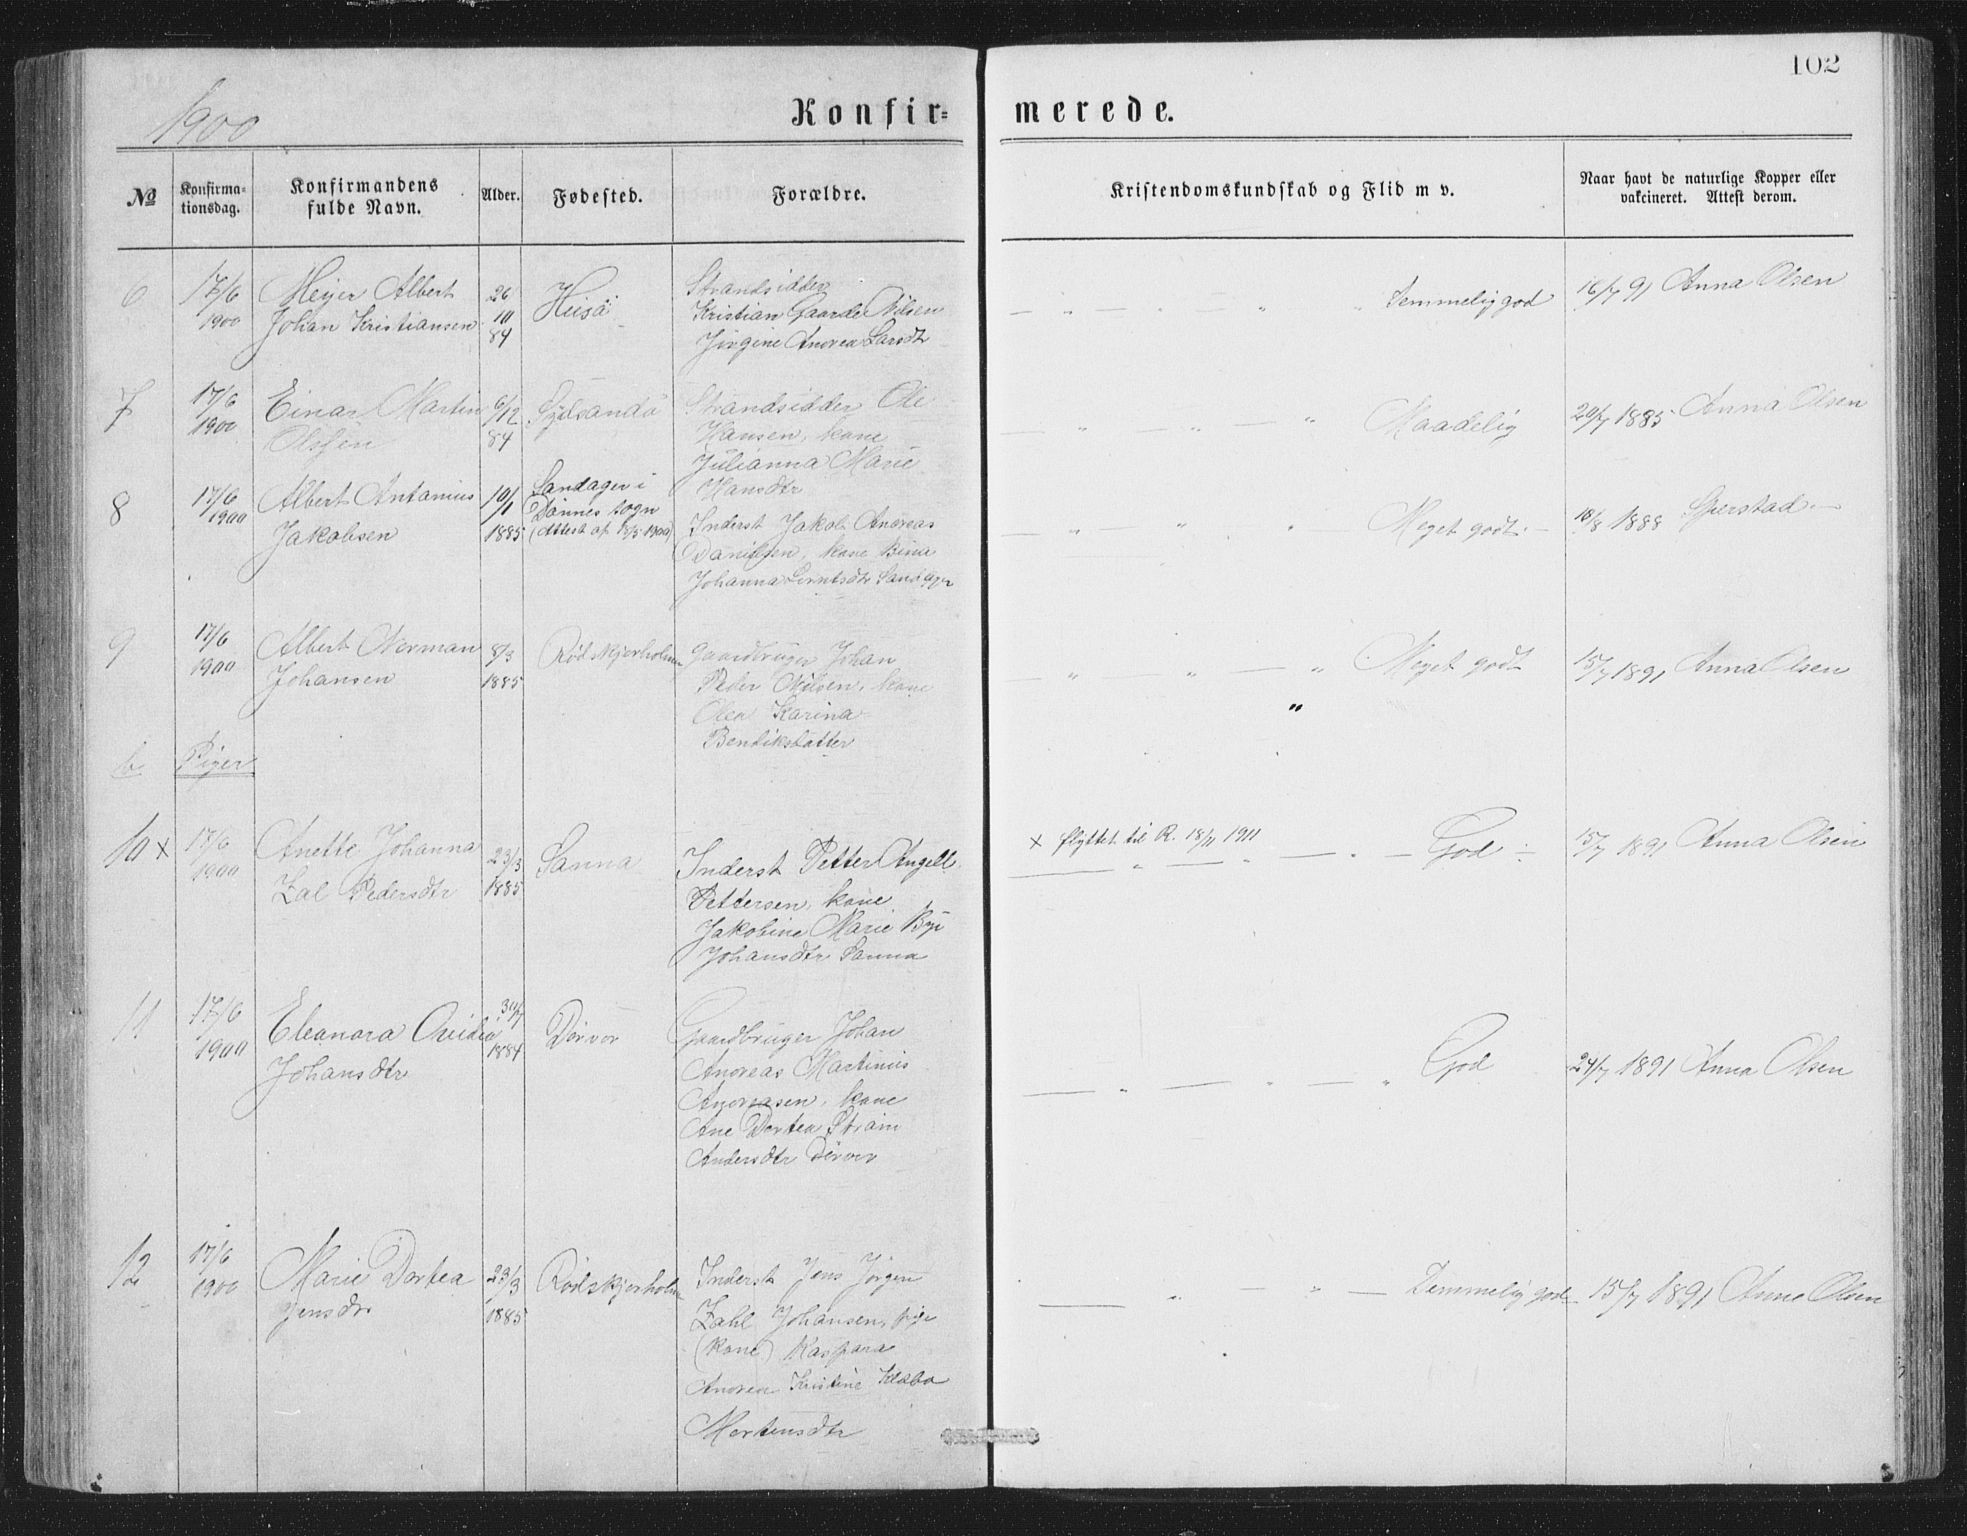 102
1900
Konfir=
merede.
№
Konfirma=
tionsdag.
Konfirmandens
fulde Navn.
Alder.
Fødested.
Forældre.
Kristendomskundskab og Flid m v.
Naar havt de naturlige Kopper eller
vakcineret. Attest derom.
6
17/6
1900
Meyer Albert
Johan Kristiansen
26
10
84
Husö
Strandsidder
Kristian Gaarde Nilsen
Jörgine Andrea Larsdtr
Temmelig god
16/7 91 Anna Olsen
7
17/6
1900
Einar Martin
Olsen
6/12
84
Sydsandö
Strandsidder Ole
Hansen, kone
Julianna Marie
Hansdtr
Maadelig
20/7 1885 Anna Olsen
8
17/6
1900
Albert Antonius
Jakobsen
10/1
1885
Sandager i
Dönnes sogn
(Attest af 18/5 1900)
Inderst Jakob Andreas
Danielsen, kone Bina
Johanna Berntsdtr Sandager
Meget godt
18/8 1888
9
17/6
1900
Albert Norman
Johansen
8/3
1885
Rødskjerholmen
Gaardbruger Johan
Peder Nilsen, kone
Olea Karina
Bendiksdatter
Meget godt
15/7 1891 Anna Olsen
b Piger
10 x
17/6
1900
Anette Johanna
Zal Pedersdtr
23/3
1885
Sanna
Inderst Petter Angell
Pettersen, kone
Jakobine Marie By
Johansdtr Sanna
x flyttet til R. 18/11 1911
God
15/7 1891 Anna Olsen
11
17/6
1900
Eleanora Ovidia
Johansdtr
31/7
1884
Dørvær
Gaardbruger Johan
Andreas Martinus
Andreasen, kone
Ane Dortea Strøm
Andersdtr Dörvær
God
24/7 1891 Anna Olsen
12
17/6
1900
Marie Dortea
Jensdtr
23/3
1885
Rødskjerholmen
Inderst Jens Jörgen
Zahl Johansen, pige
(kone) Kaspara
Andrea Kristine Klæbo
Mortensdtr
Temmelig god
15/7 1891 Anna Olsen